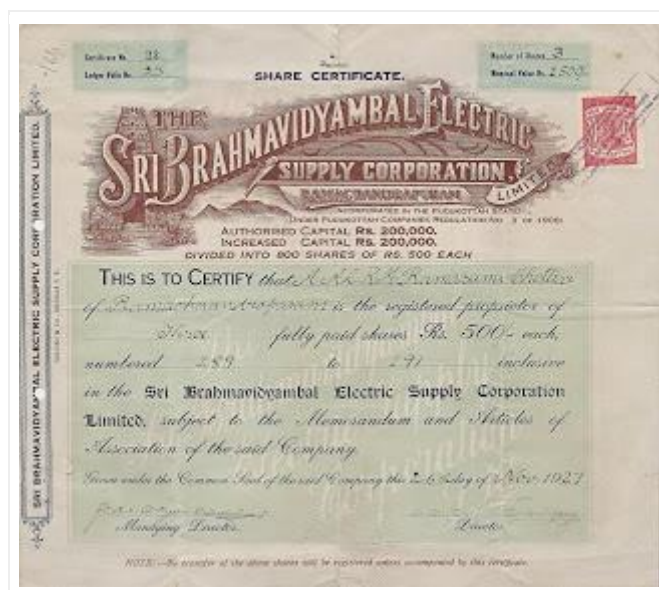 Certificate No. 98
Ledger Folio No.
Number of Shares 3
Nominal Value Rs.
SHARE CERTIFICATE.
THE
SRI BRAHMAVIDYAMBAL ELECTRIC
SUPPLY CORPORATION,
LIMITED
RAMACHANDRAPURAM
INCORPORATED IN THE PUDUKOTTAH STATE
UNDER PUDUKOTTAH COMPANIES REGULATION NO. 3 OF
AUTHORISED CAPITAL RS. 200,000.
INCREASED CAPITAL RS. 200,000.
DIVIDED INTO 800 SHARES OF RS. 500 EACH
THIS IS TO CERTIFY that Ramasami Chettiar
of Ramachandrapuram is the registered proprietor of
Three fully paid shares Rs. 500- each,
numbered 289 to 291 inclusive
in the Sri Brahmavidyambal Electric Supply Corporation
Limited, subject to the Memorandum and Articles of
Association of the said Company.
Given under the Common Seal of the said Company this day of Nov. 1927
Managing Director.
Director.
NOTE:—No transfer of the above shares will be registered unless accompanied by this certificate.
SRI BRAHMAVIDYAMBAL ELECTRIC SUPPLY CORPORATION LIMITED.